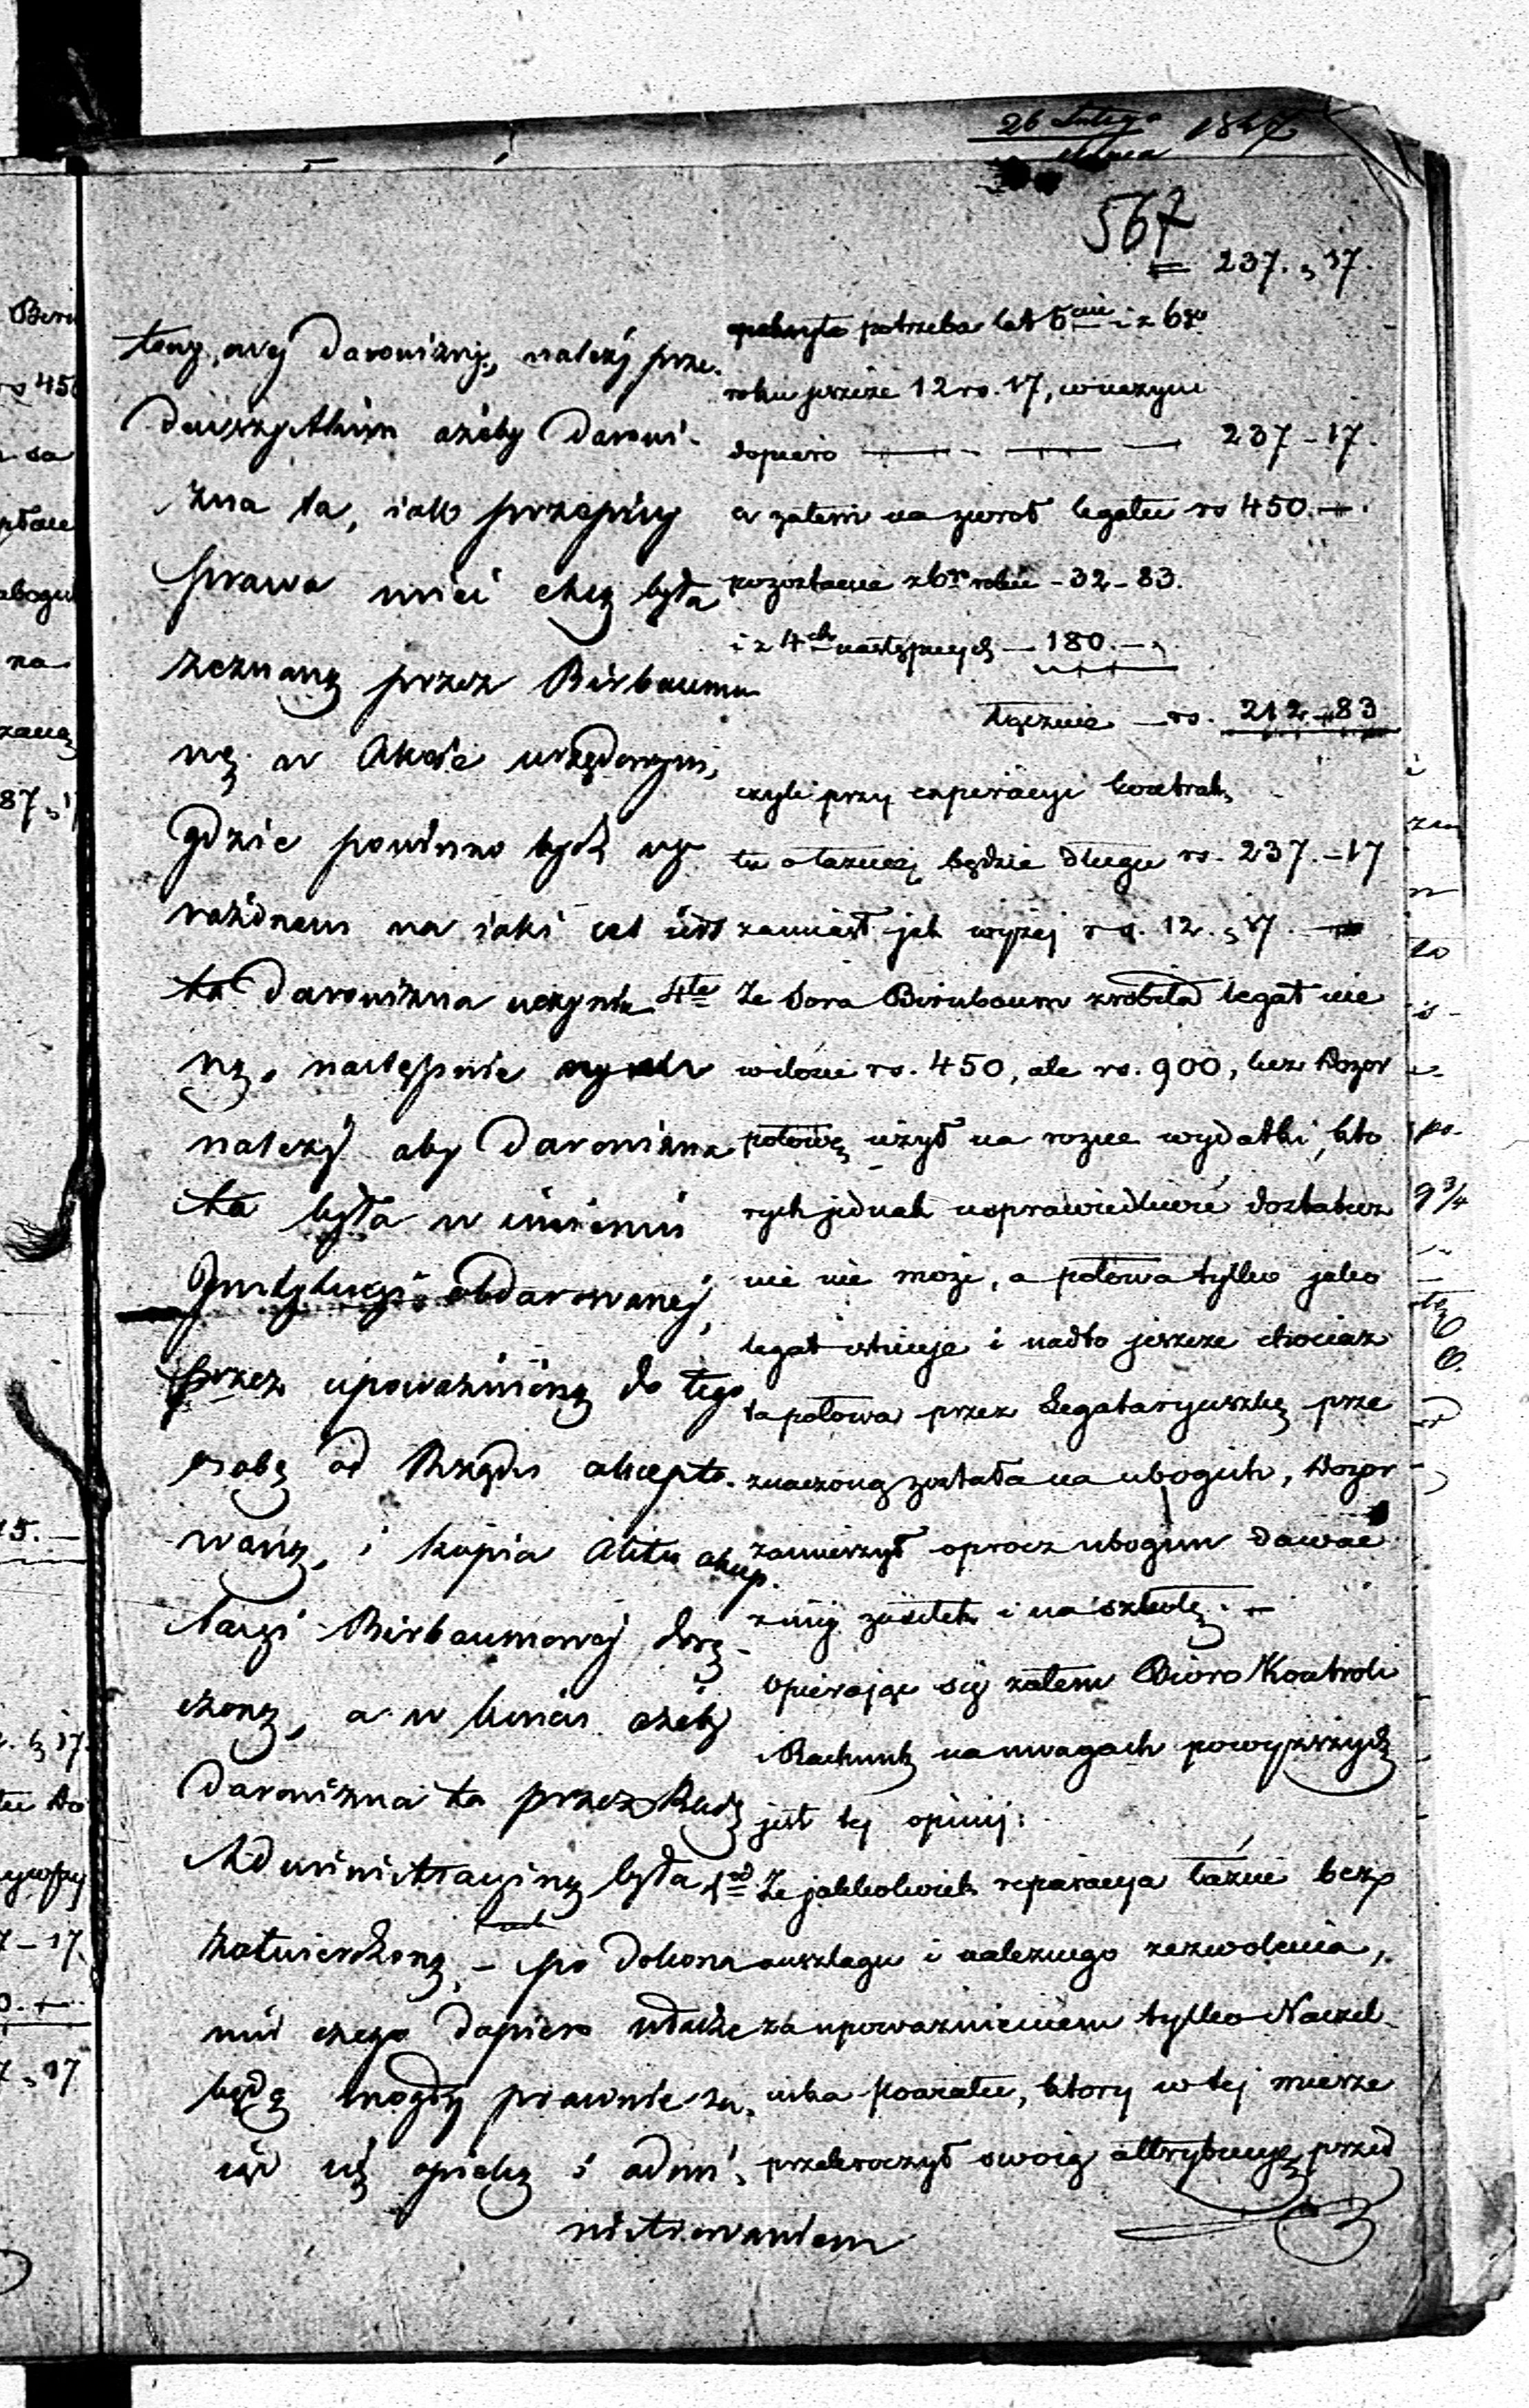 26 Lutego 1847
Marca
567
= 237. „ 17.
tey, owej darowizny, należy prze-
dewszystkim ażeby darowi-
zna ta, iak przepisy
prawa mieć chcą była
zeznaną przez Birbaumo-
wę w Akcie urzędowym,
gdzie powinno być wy-
rażonem na iaki cel iest
ta darowizna uczynio-
ną, następnie
należy aby darowizna
ta była w imieniu
Instytucyi obdarowanej,
przez upoważnioną do tego
osobę od Rządu akcepto-
waną, i kopia Aktu akcep-
tacyi Birbaumowej dorę-
czoną, a w końcu ażeby
darowizna ta przez Radę
Administracyiną była
zatwierdzoną, – po dokona-
niu czego dopiero władze
będą mogły prawnie za-
iąć się opieką i admi-
nistrowaniem
pokrycie potrzeba lat 5ciu i z 6go
roku jeszcze 12 rs. 17, uczyni
dopiero — — — 237 – 17.
a zatem na zwrot legatu rs 450. —
pozostanie z 6go roku – 32 – 83.
i z 4ch następnych — 180. – „
łącznie — rs. 212 – 83
czyli przy expiracyi kontrak-
tu o łaznią będzie długu rs. 237. – 17
zamiast jak wyżej rs. 12. „ 17. —
4te Że Sora Birnbaum zrobiła legat nie
w ilości rs. 450, ale rs. 900, lecz Dozor
połowę użył na rozne wydatki, kto
rych jednak usprawiedliwić dostatecz
nie nie może, a połowa tylko jako
legat istnieje i nadto jeszcze chociaż
ta połowa przez Legataryuszkę prze
znaczoną została na ubogich, Dozor
zamierzył oprocz ubogim dawać
z niej zasiłek i na szkołę. —
Opierając się zatem Biuro Kontroli
i Rachunk. na uwagach powyższych
jest tej opinij:
1od Że jakkolwiek reparacya łazni bez
anszlagu i należnego zezwolenia,
za upoważnieniem tylko Naczel-
nika Powiatu, ktory w tej mierze
przekroczył swoią attrybucyę, przed